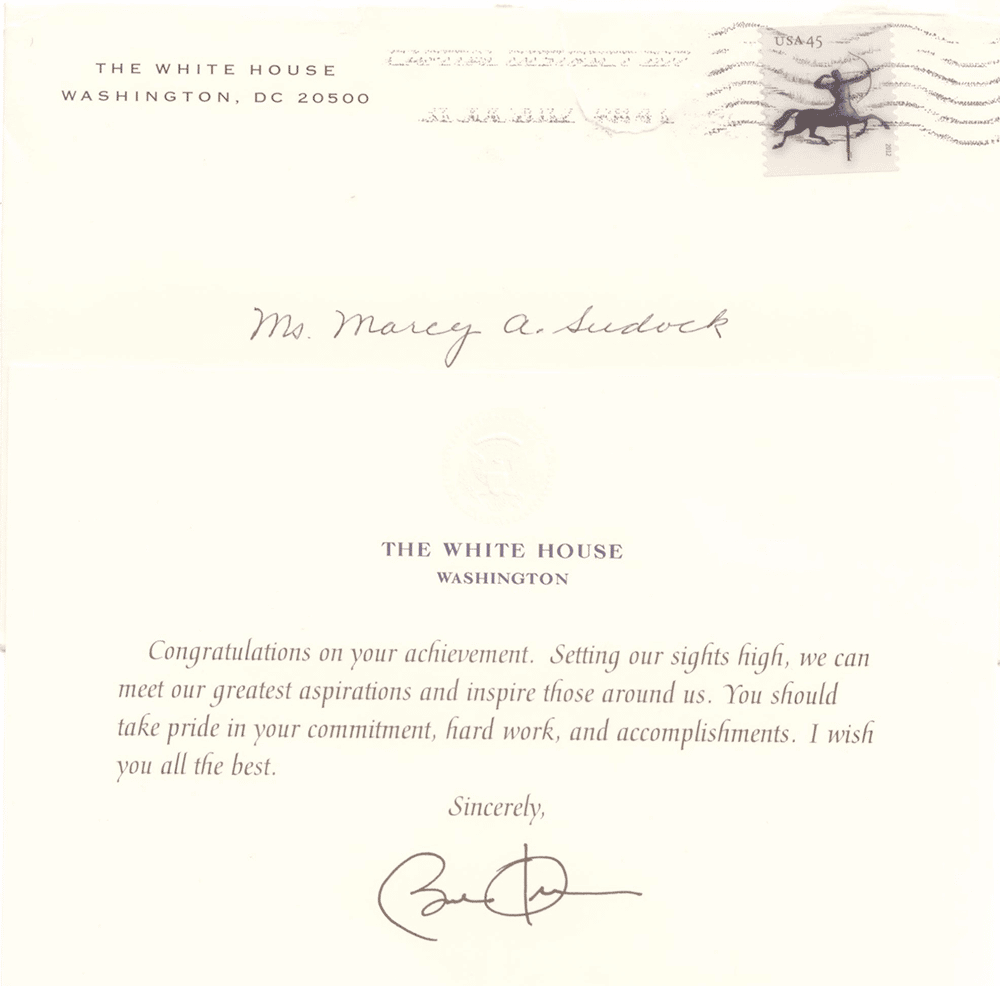 THE WHITE HOUSE
WASHINGTON, DC 20500
USA 45
2012
Ms. Marcy A. Sudock
THE WHITE HOUSE
WASHINGTON
Congratulations on your achievement. Setting our sights high, we can
meet our greatest aspirations and inspire those around us. You should
take pride in your commitment, hard work, and accomplishments. I wish
you all the best.
Sincerely,